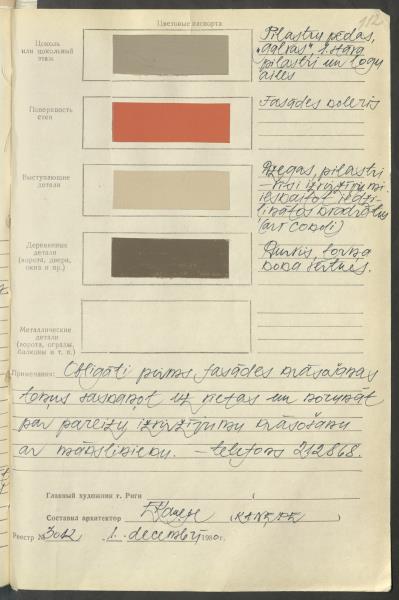 112
Цветовые паспорта
Цоколь
или цокольный
этаж
Pilastru pēdas,
"galvas", 1. stāva
pilastri un logu
ailes
Поверхность
стен
Fasādes koleris
Выступающие
детали
Dzegas, pilastri
– visi izvirzījumi
ieskaitot iedzi-
linātos kvadrātus
(art cokoli)
Деревянные
детали
(ворота, двери,
окна и пр.)
Durvis, torņa
koka vērtnes.
Металлические
детали
(ворота, ограды,
балконы и т. п.)
Примечания: Obligāti pirms fasādes krāsošanas
toņus saskaņot uz vietas un norunāt
par pareizu izvirzījumu krāsošanu
ar mākslinieku. – telefons 212868.
Главный художник г. Риги ( )
Составил архитектор
Реестр № 3042 1. decembrī 1980 г.